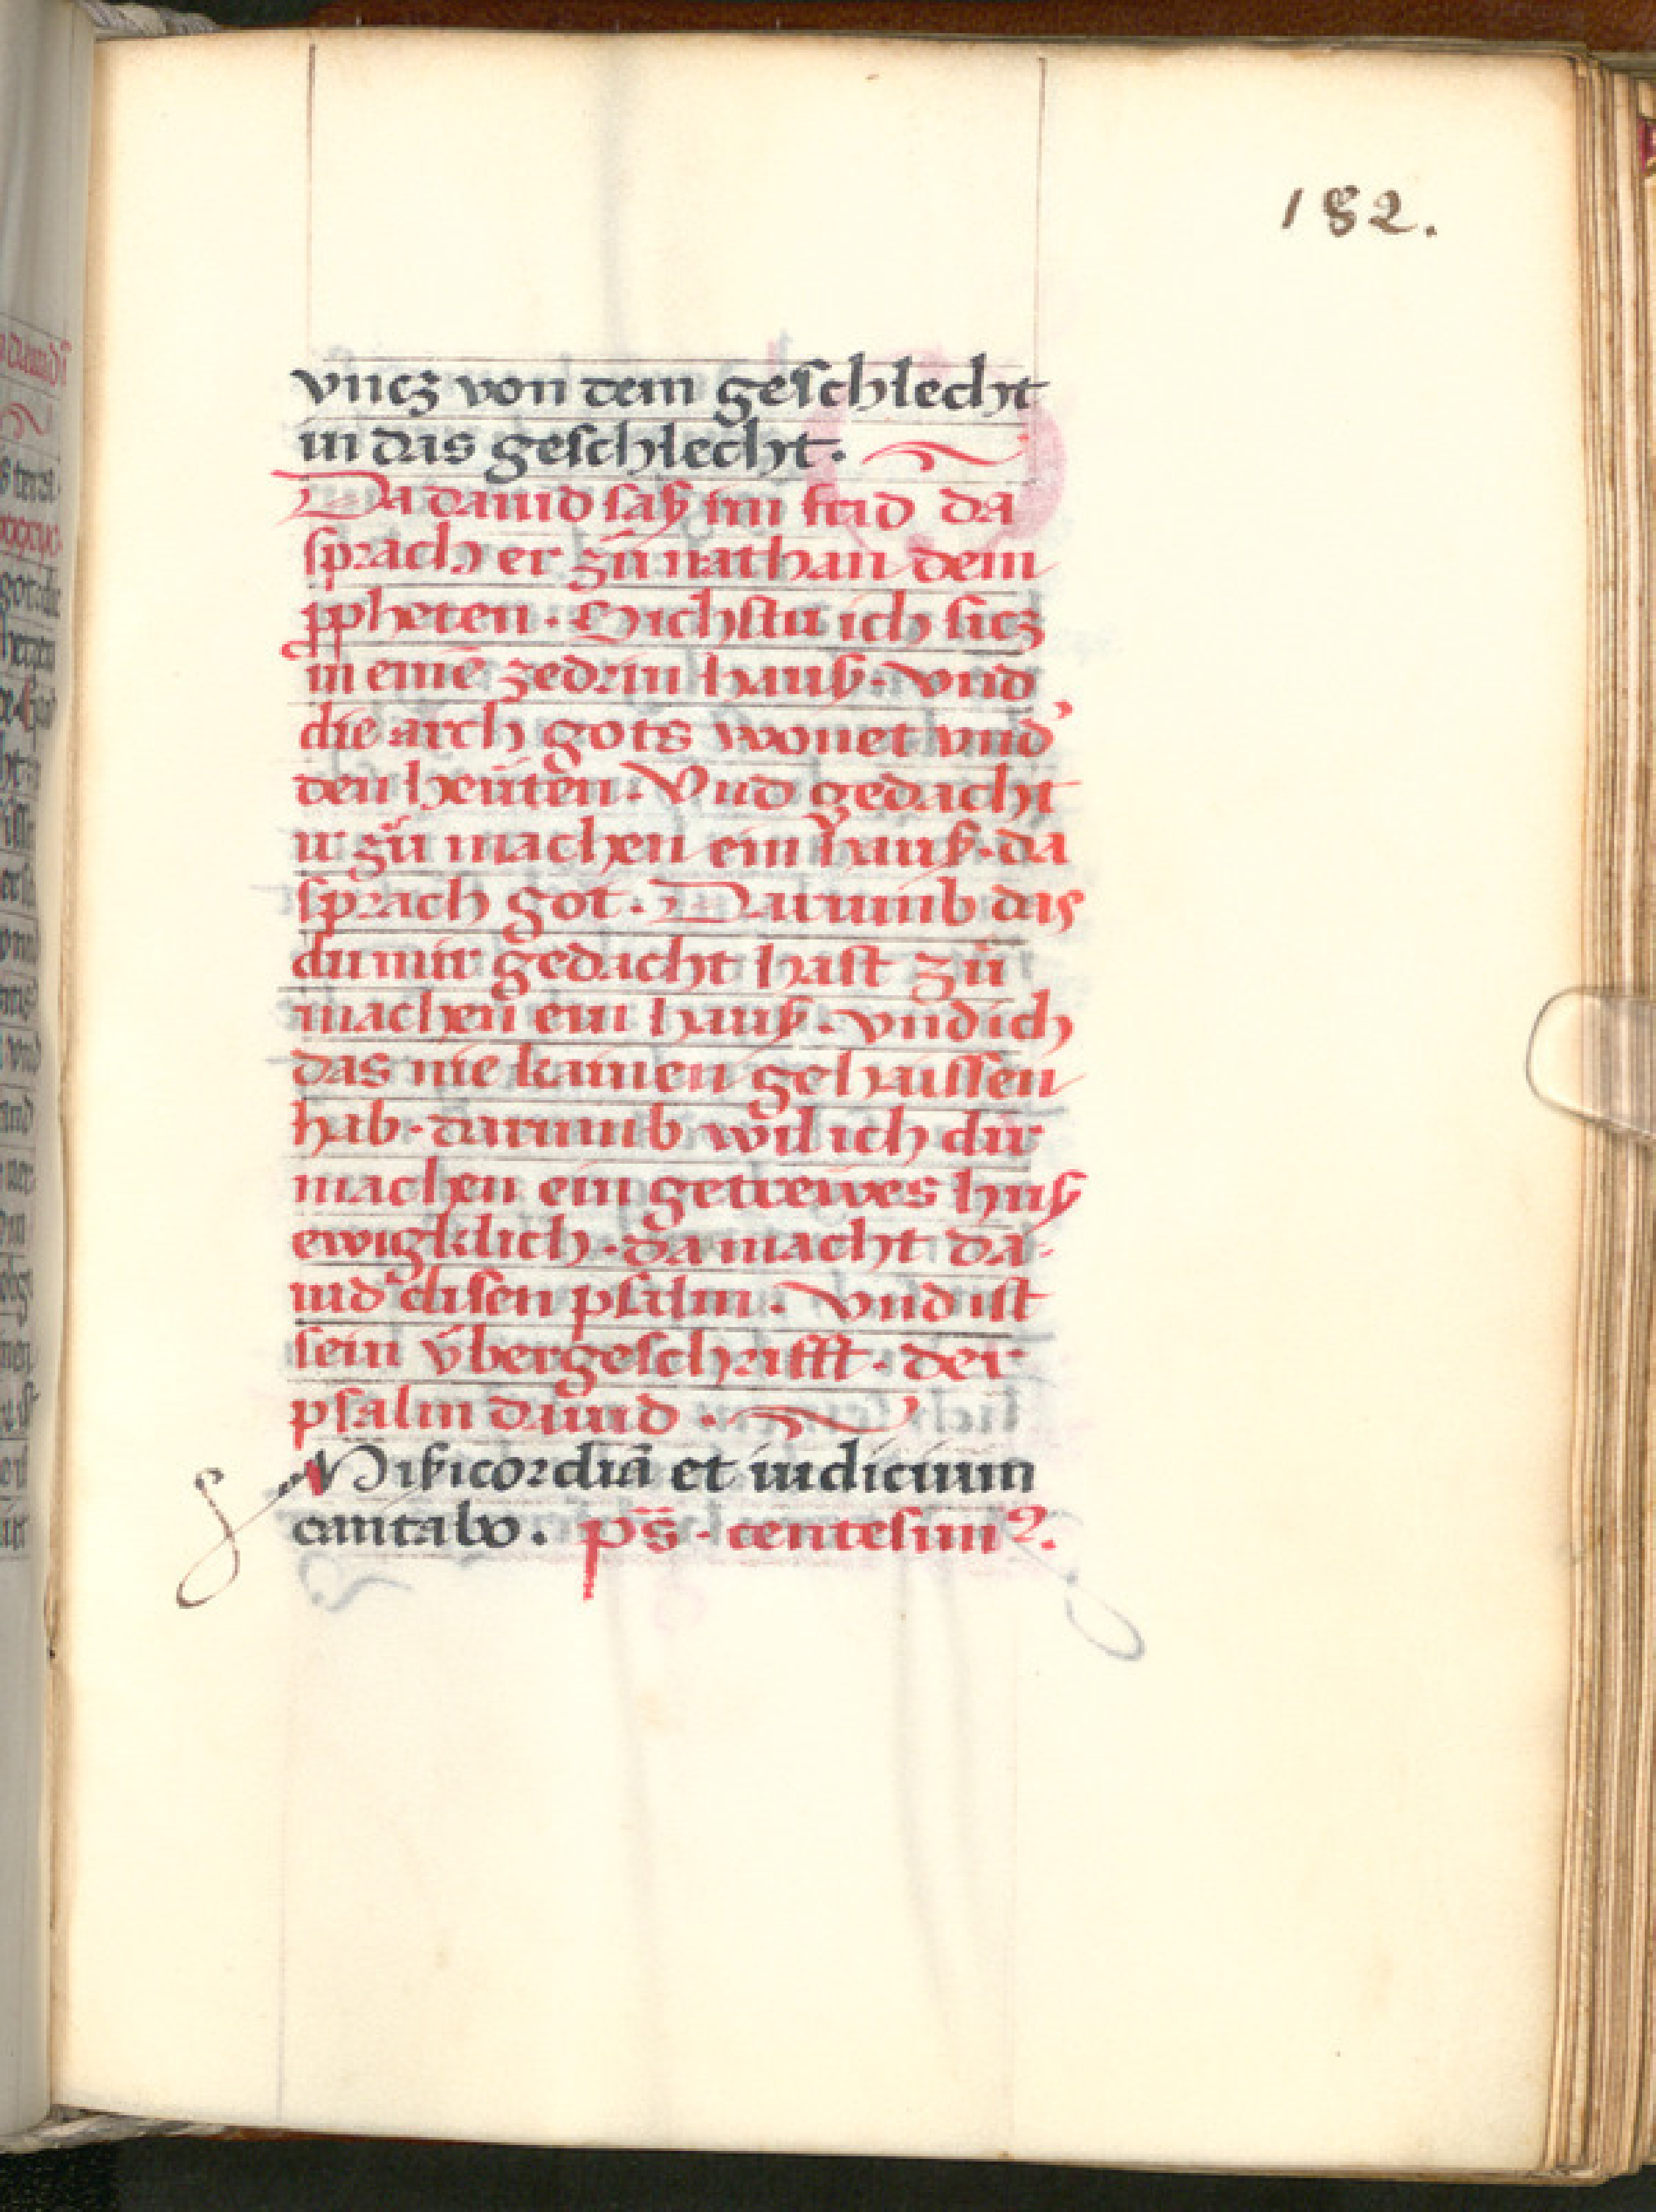 182.
vncz von dem geschlecht
in das geschlecht.
Da dauid saß im frid da
sprach er zů nathan dem
ꝓpheten. Sichstu ich sicz
in einē zedrin hauß. vnd
die arch gots wonet vnd'
den heüten. Vnd gedacht
ir zů machen ein hauß. da
sprach got. Darumb das
du mir gedacht hast zů
machen ein hauß. vnd ich
das nie kainen gehaissen
hab. darumb wil ich dir
machen ein getrewes huß
ewigklich. da macht da-
uid disen psalm. Vnd ist
sein v̈bergeschrifft. der
psalm dauid.
Misicordiā et iudicium
cantabo. ps̄. centesim⁹.